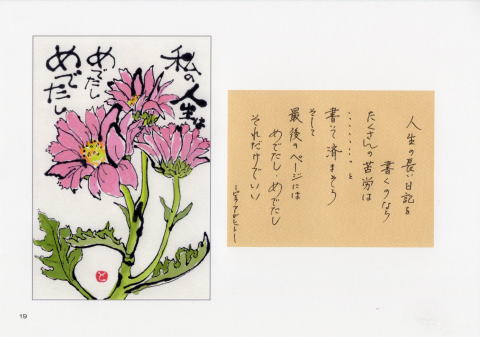 私の人生は
めでたし
めでたし
人生の長い日記を
書くのなら
たくさんの苦労は
・・・・・・・と
書いて済まそう
そして
最後のページには
めでたし・めでたし
それだけでいい
19